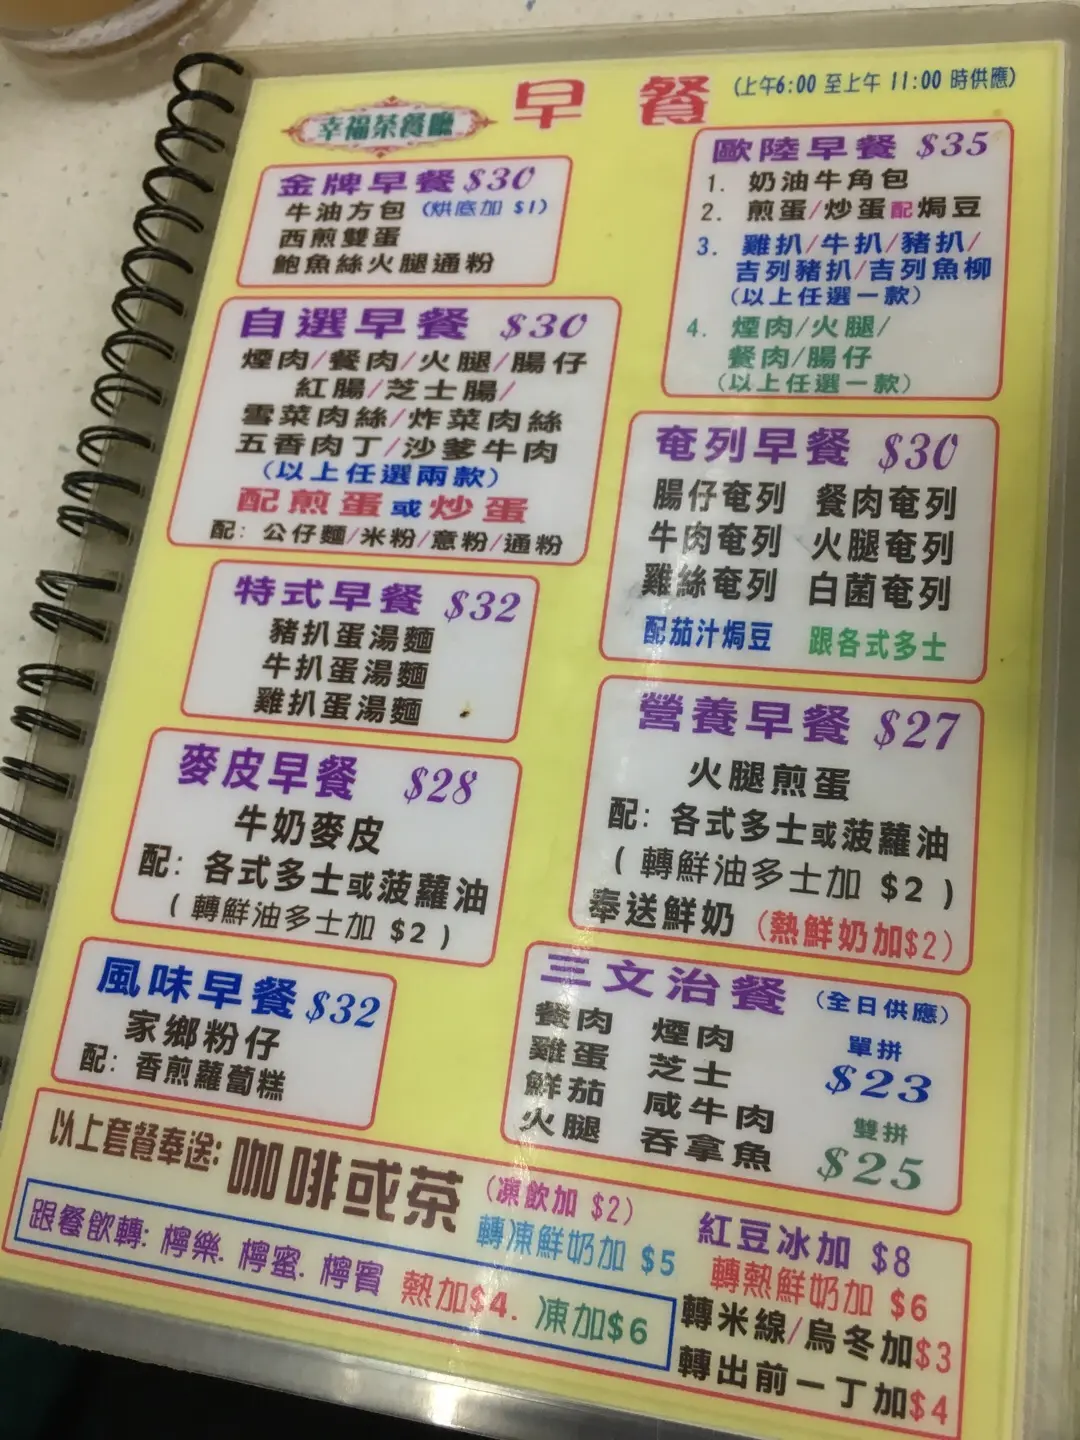 幸福茶餐廳
早餐
(上午6:00 至上午 11:00 時供應)
金牌早餐 $30
牛油方包 (烘底加 $1)
西煎雙蛋
鮑魚絲火腿通粉
自選早餐 $30
煙肉/餐肉/火腿/腸仔
紅腸/芝士腸/
雪菜肉絲/炸菜肉絲
五香肉丁/沙爹牛肉
(以上任選兩款)
配煎蛋或炒蛋
配: 公仔麵/米粉/意粉/通粉
特式早餐 $32
豬扒蛋湯麵
牛扒蛋湯麵
雞扒蛋湯麵
麥皮早餐 $28
牛奶麥皮
配: 各式多士或菠蘿油
( 轉鮮油多士加 $2 )
風味早餐 $32
家鄉粉仔
配: 香煎蘿蔔糕
歐陸早餐 $35
1. 奶油牛角包
2. 煎蛋/炒蛋配焗豆
3. 雞扒/牛扒/豬扒/
吉列豬扒/吉列魚柳
(以上任選一款)
4. 煙肉/火腿/
餐肉/腸仔
(以上任選一款)
奄列早餐 $30
腸仔奄列 餐肉奄列
牛肉奄列 火腿奄列
雞絲奄列 白菌奄列
配茄汁焗豆 跟各式多士
營養早餐 $27
火腿煎蛋
配: 各式多士或菠蘿油
( 轉鮮油多士加 $2 )
奉送鮮奶 (熱鮮奶加$2)
三文治餐 (全日供應)
餐肉 煙肉 單拼
雞蛋 芝士 $23
鮮茄 咸牛肉 雙拼
火腿 吞拿魚 $25
以上套餐奉送: 咖啡或茶 (凍飲加 $2)
轉凍鮮奶加 $5
紅豆冰加 $8
轉熱鮮奶加 $6
跟餐飲轉: 檸樂. 檸蜜. 檸賓 熱加$4. 凍加$6
轉米線/烏冬加$3
轉出前一丁加$4